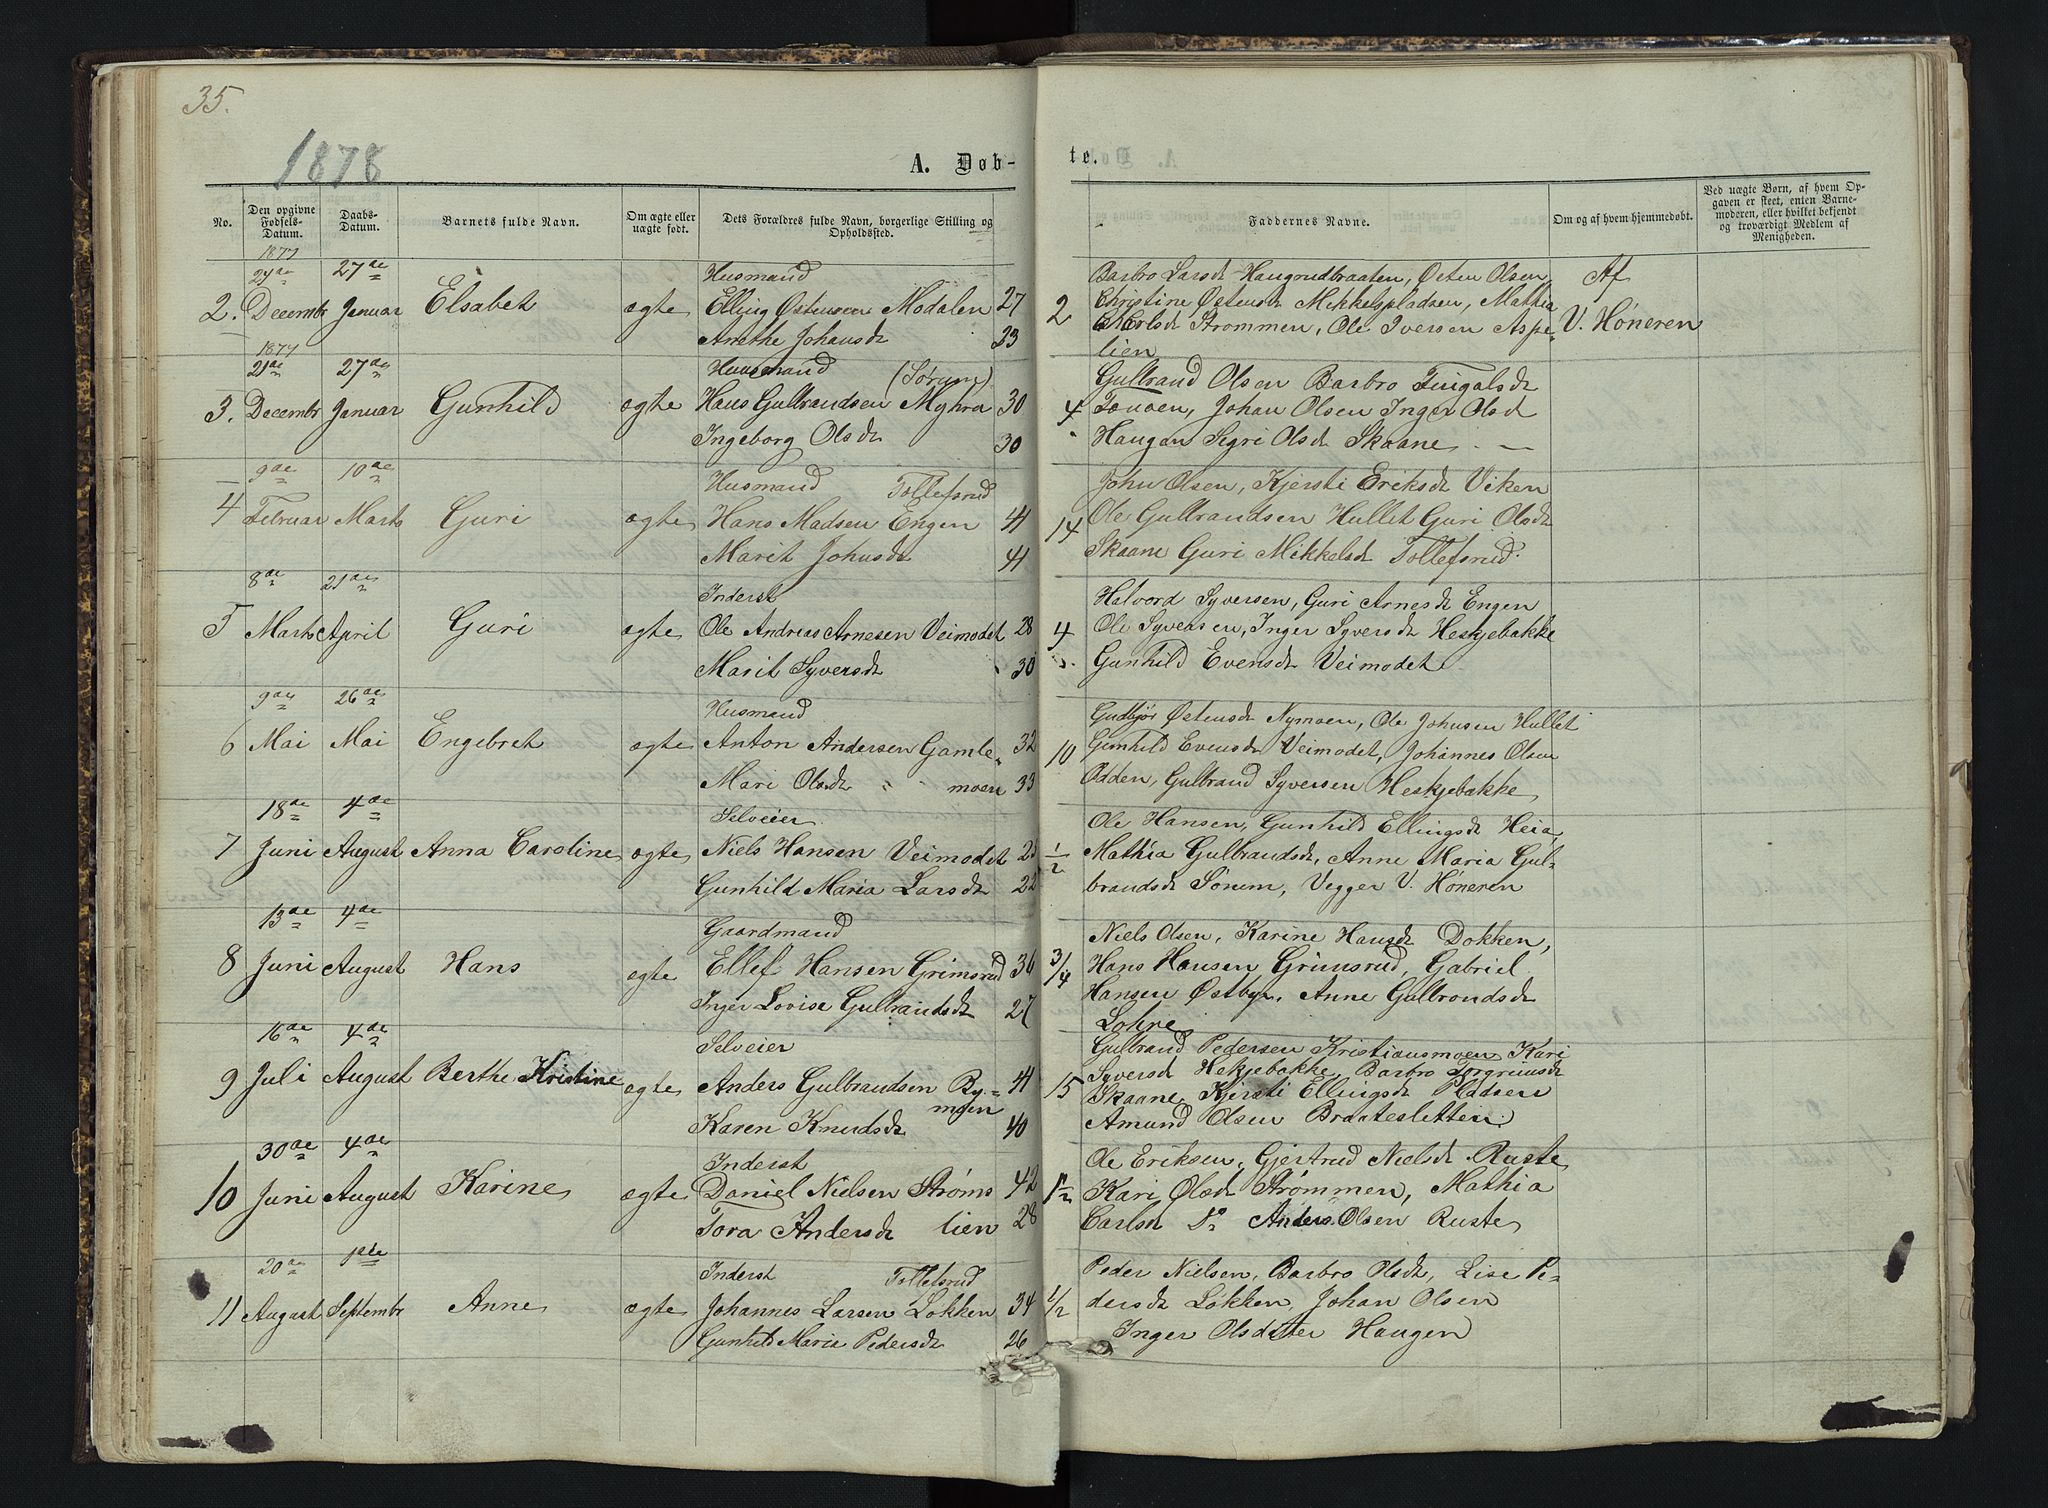 35.
1878
A. Døb-
te.
No.
Den opgivne Fødsels-Datum.
Daabs-Datum.
Barnets fulde Navn.
Om ægte eller uægte født.
Dets Forældres fulde Navn, borgerlige Stilling og Opholdssted.
Faddernes Navne.
Om og af hvem hjemmedøbt.
Ved uægte Børn, af hvem Opgaven er skeet, enten Barnemoderen, eller hvilket bekjendt og troværdigt Medlem af Menigheden.
1877
27de 27de Husmand
2. Decembr Januar Elsabet ægte Elling Østensen Modalen 27
Anethe Johansdt 23
2 Barbro Larsdt Haugrudbraaten, Østen Olsen
Christine Østensdt Mikkelspladsen, Mathia
Carlsdt Strømmen, Ole Iversen Aspe-
lien
Af
V. Høneren
1877
21de 27de Huusmand (Sørum)
3. Decembr Januar Gunhild ægte Hans Gulbrandsen Myhra 30
Ingeborg Olsdt 30
4 Gulbrand Olsen Barbro
Johan Olsen Inger Olsdt
Haugen Sigri Olsdt Skaane
9de 10de Husmand Tollefsrud
4 Februar Marts Guri ægte Hans Madsen Engen 41
Marit Johnsdt 41
14 John Olsen, Kjersti Eriksdt Viken
Ole Gulbrandsen Hullet Guri Olsdt
Skaane Guri Mikkelsdt Tollefsrud.
8de 21de Inderst
5 Marts April Guri ægte Ole Andreas Arnesen Veimodet 28
Marit Syversdt 30
4 Halvord Syversen, Guri Arnesdt Engen
Ole Syversen, Inger Syversdt Heskjebakke
Gunhild Evensdt Veimodet
9de 26de Husmand
6 Mai Mai Engebret ægte Anton Andersen Gamle- 32
Mari Olsdt " " moen 33
10 Gudbjør Østensdt Nymoen, Ole Johnsen Hullet
Gunhild Evensdt Veimodet, Johannes Olsen
Odden, Gulbrand Syversen Heskjebakke
18de 4de Selveier
7 Juni August Anna Caroline ægte Niels Hansen Veimodet 25
Gunhild Maria Larsdt 22
1/2 Ole Hansen, Gunhild Ellingsdt Heia,
Mathia Gulbrandsdt, Anne Maria Gul-
brandsdt Sørum, Vegger V. Høneren
13de 4de Gaardmand
8 Juni August Hans ægte Ellef Hansen Grimsrud 36
Inger Lovise Gulbrandsdt 27
3/4 Niels Olsen, Karine Hansdt Dokken,
Hans Hansen Grimsrud, Gabriel
Hansen Østbye, Anne Gulbrandsdt
Lohre
16de 4de Selveier
9 Juli August Berthe Kristine ægte Anders Gulbrandsen By- 41
moen
Karen Knudsdt 40
15 Gulbrand Pedersen Kristiansmoen Kari
Syversdt Hekjebakke, Barbro Torgrimsdt
Skaane, Kjersti Ellingsdt Pladsen
Amund Olsen Braatesletten.
30de 4de Inderst
10 Juni August Karine ægte Daniel Nielsen Strøms 42
Tora Andersdt lien 28
1/2 Ole Eriksen, Gjertrud Nielsdt Ruste
Kari Olsdt Strømmen, Mathia
Carlsdt Do Anders Olsen Ruste
20de 1ste Inderst Tollefsrud
11 August Septembr Anne ægte Johannes Larsen Løkken 34
Gunhild Maria Pedersdt 26
1/2 Peder Nielsen, Barbro Olsdt, Lise Pe-
dersdt Løkken, Johan Olsen
Inger Olsdatter Haugen